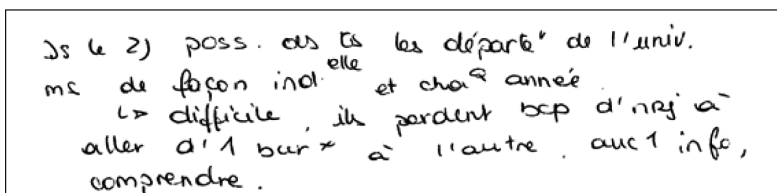 Ds le 2) poss. ds ts les départᵗ de l'univ.
ms de façon indᵉˡˡᵉ et chaQ année
↳ difficile, ils perdent bcp d'nrj à
aller d'1 bur* à l'autre. auc 1 info,
comprendre.